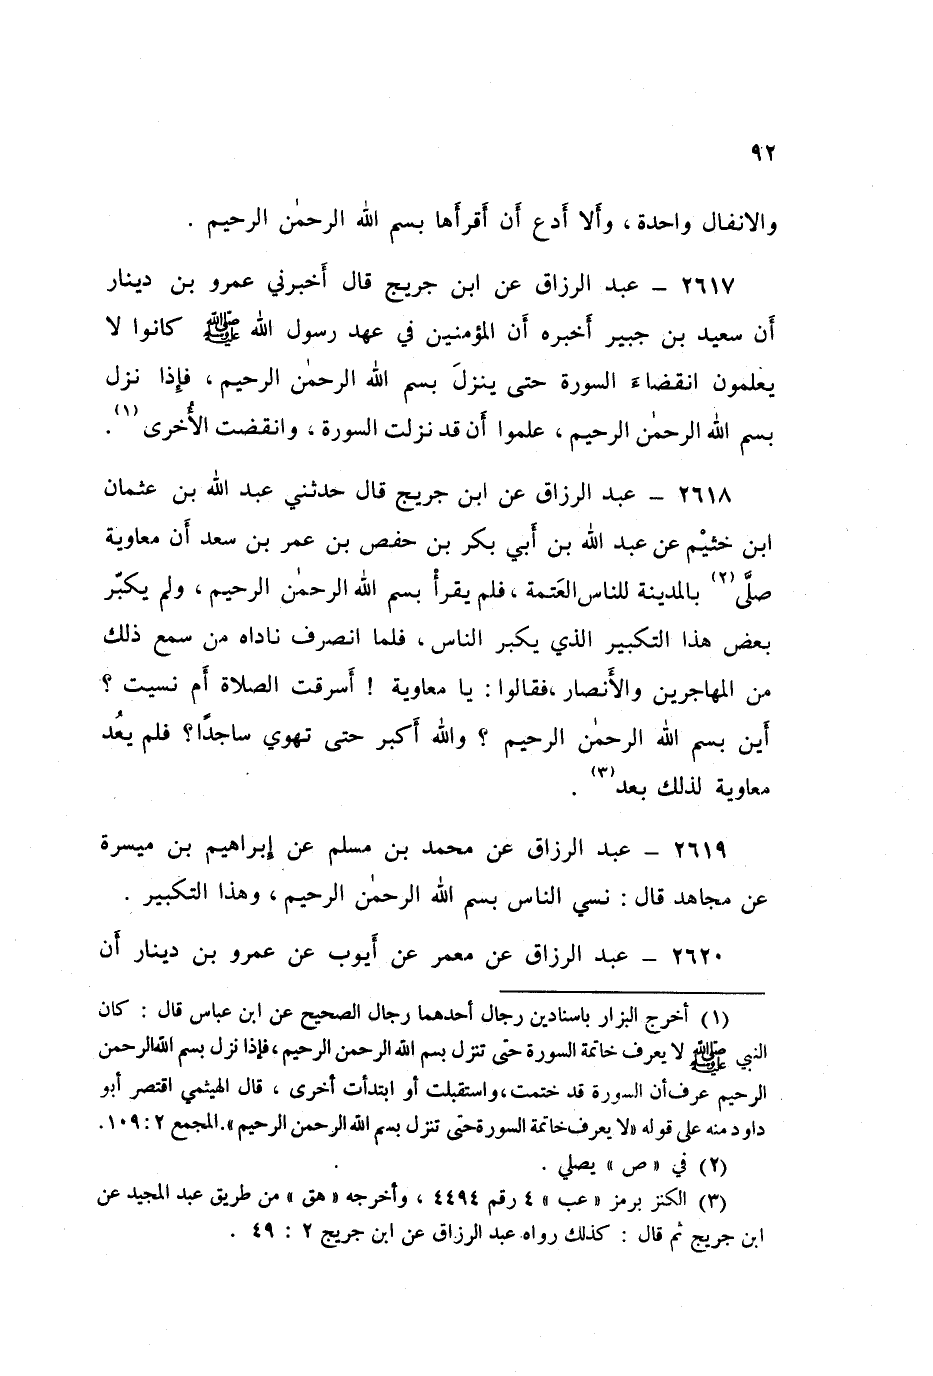 ٩٢
والانفال واحدة ، وألا أدع أن أقرأها بسم الله الرحمٰن الرحيم .
٢٦١٧ – عبد الرزاق عن ابن جريج قال أخبرني عمرو بن دينار
أن سعيد بن جبير أخبره أن المؤمنين في عهد رسول الله ﷺ كانوا لا
يعلمون انقضاءَ السورة حتى ينزلَ بسم الله الرحمٰن الرحيم ، فإذا نزل
بسم الله الرحمٰن الرحيم ، علموا أن قد نزلت السورة ، وانقضت الأُخرى (١) .
٢٦١٨ – عبد الرزاق عن ابن جريج قال حدثني عبد الله بن عثمان
ابن خثيْم عن عبد الله بن أبي بكر بن حفص بن عمر بن سعد أن معاوية
صلَّى (٢) بالمدينة للناس العَتمة ، فلم يقرأْ بسم الله الرحمٰن الرحيم ، ولم يكبّر
بعض هذا التكبير الذي يكبر الناس ، فلما انصرف ناداه من سمع ذلك
من المهاجرين والأَنصار ،فقالوا : يا معاوية ! أَسرقت الصلاة أَم نسيت ؟
أَين بسم الله الرحمٰن الرحيم ؟ والله أَكبر حتى تهوي ساجدًا ؟ فلم يعُد
معاوية لذلك بعد (٣) .
٢٦١٩ – عبد الرزاق عن محمد بن مسلم عن إبراهيم بن ميسرة
عن مجاهد قال : نسي الناس بسم الله الرحمٰن الرحيم ، وهذا التكبير .
٢٦٢٠ – عبد الرزاق عن معمر عن أَيوب عن عمرو بن دينار أَن
(١) أخرج البزار باسنادين رجال أحدهما رجال الصحيح عن ابن عباس قال : كان
النبي ﷺ لا يعرف خاتمة السورة حتى تنزل بسم الله الرحمن الرحيم ، فإذا نزل بسم الله الرحمن
الرحيم عرف أن السورة قد ختمت ، واستقبلت أو ابتدأت أخرى ، قال الهيثمي اقتصر أبو
داود منه على قوله «لا يعرف خاتمة السورة حتى تنزل بسم الله الرحمن الرحيم». المجمع ٢ : ١٠٩ .
(٢) في « ص » يصلي .
(٣) الكنز برمز « عب » ٤ رقم ٤٤٩٤ ، وأخرجه « هق » من طريق عبد المجيد عن
ابن جريج ثم قال : كذلك رواه عبد الرزاق عن ابن جريج ٢ : ٤٩ .